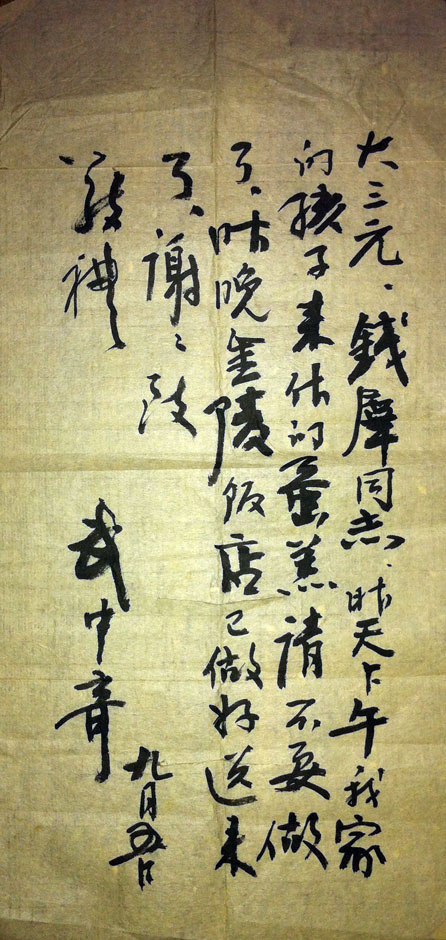 大三元、錢犀同志、昨天下午我家
的孩子来估的蛋羔請不要做
了、昨晚金陵饭店已做好送来
了、謝〻 致
敬禮
武中奇
九月五日